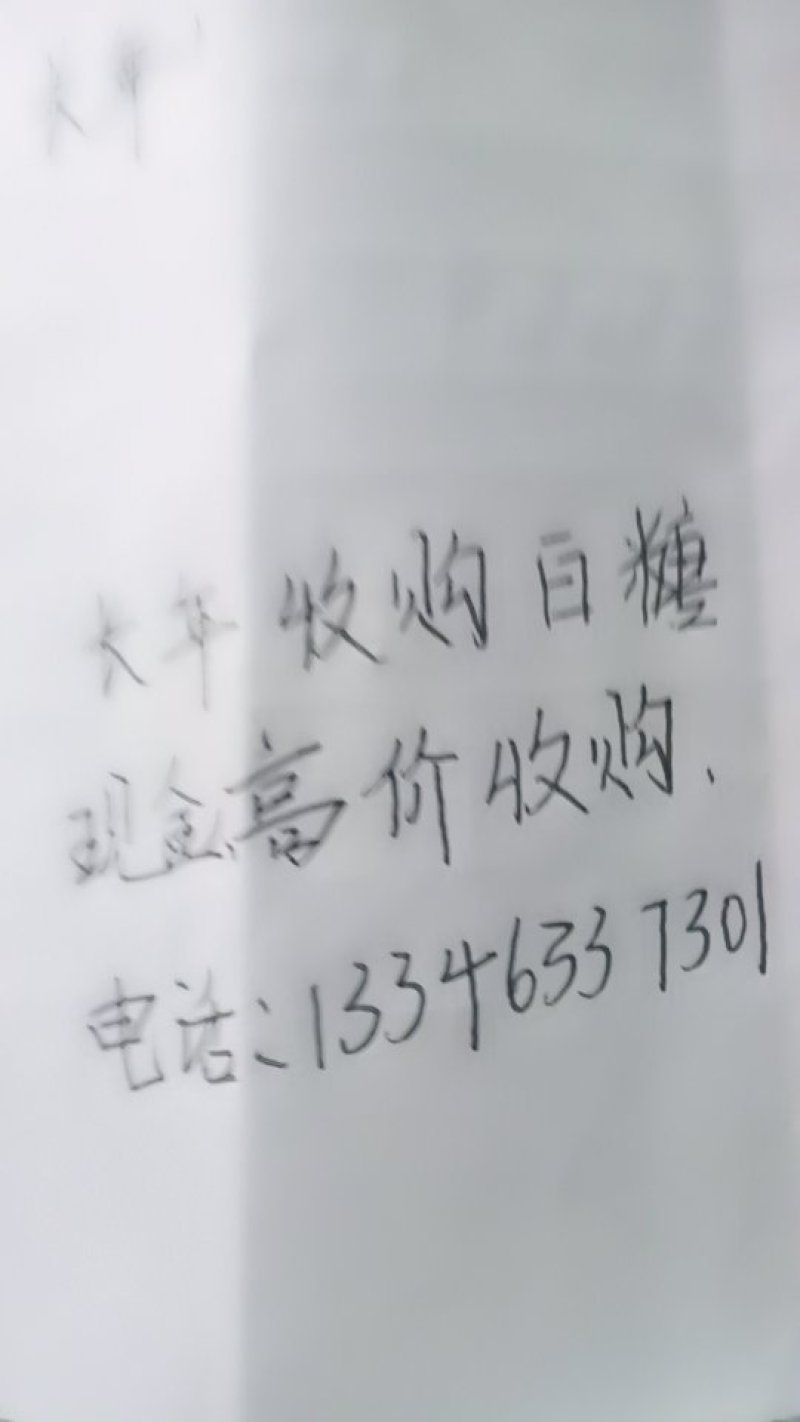 大年
大年收购白糖
现金高价收购、
电话:13346337301